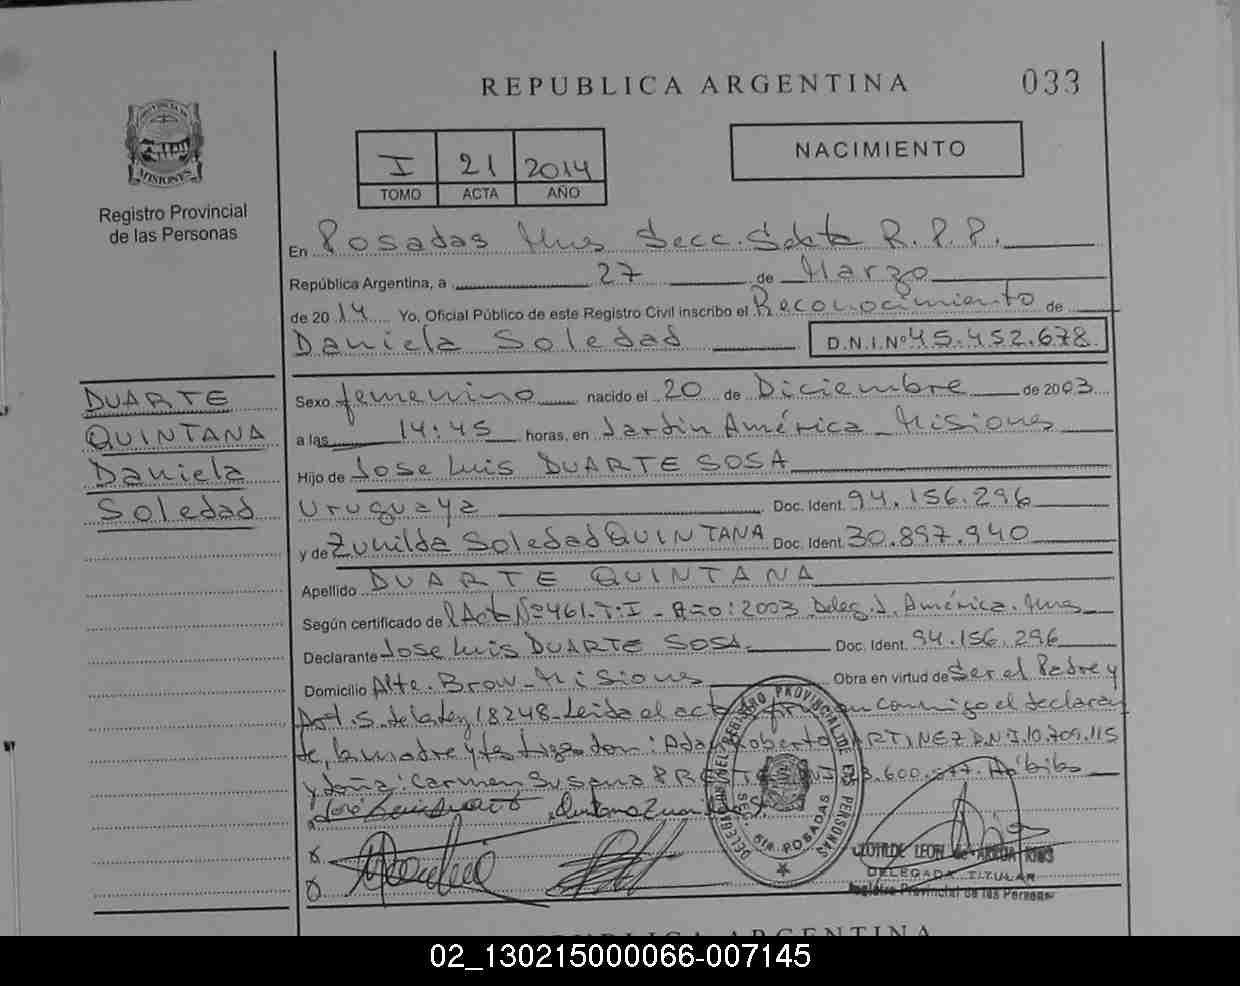 REPUBLICA ARGENTINA
033
PROVINCIA DE MISIONES
Registro Provincial
de las Personas
I 21 2014
TOMO ACTA AÑO
NACIMIENTO
En Posadas Mnes Secc. Sexta R.P.P.
República Argentina, a 27 de Marzo
de 2014 Yo, Oficial Público de este Registro Civil inscribo el Reconocimiento de
Daniela Soledad D.N.I.Nº 45.452.678
DUARTE
QUINTANA
Daniela
Soledad
Sexo femenino nacido el 20 de Diciembre de 2003
a las 14:45 horas, en Jardin América - Misiones
Hijo de Jose Luis DUARTE SOSA
Uruguaya Doc. Ident. 94.156.296
y de Zunilda Soledad QUINTANA Doc. Ident. 30.897.940
Apellido DUARTE QUINTANA
Según certificado de Acta Nº 461-T:I - Año: 2003 Deleg. J. América. Mnes
Declarante Jose Luis DUARTE SOSA Doc. Ident. 94.156.296
Domicilio Alte. Brow - Misiones Obra en virtud de Ser el Padre y
Art. 5. de la Ley 18248 - Leida el acta conmigo el declaran
te, la madre y testigo don: Adan Roberto MARTINEZ D.N.I. 10.709.115
y doña: Carmen Susana
DELEGACION DEL REGISTRO PROVINCIAL DE LAS PERSONAS
SEC. 6ta. POSADAS
CLOTILDE LEON de
DELEGADA TITULAR
Registro Provincial de las Personas
REPUBLICA ARGENTINA
02_130215000066-007145